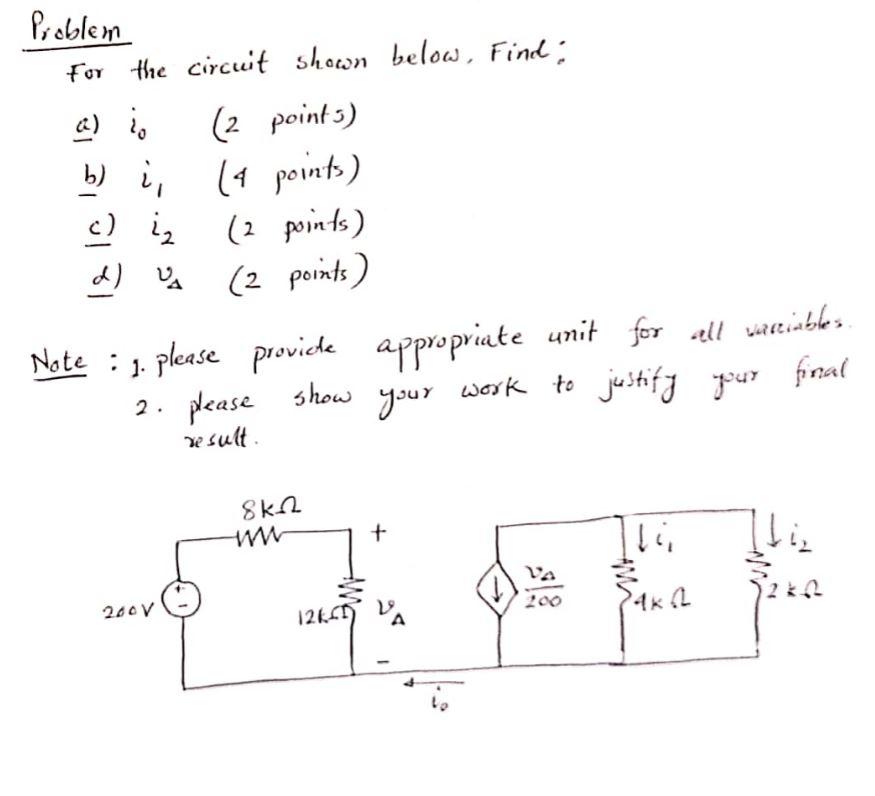 Problem
For the circuit shown below, Find:
a) i₀ (2 points)
b) i₁ (4 points)
c) i₂ (2 points)
d) v_Δ (2 points)
Note : 1. please provide appropriate unit for all variables.
2. please show your work to justify your final
result.
8kΩ
+
↓i₁
↓i₂
200V
+
-
12kΩ
v_Δ
↓
v_Δ/200
4kΩ
2kΩ
-
←
i₀